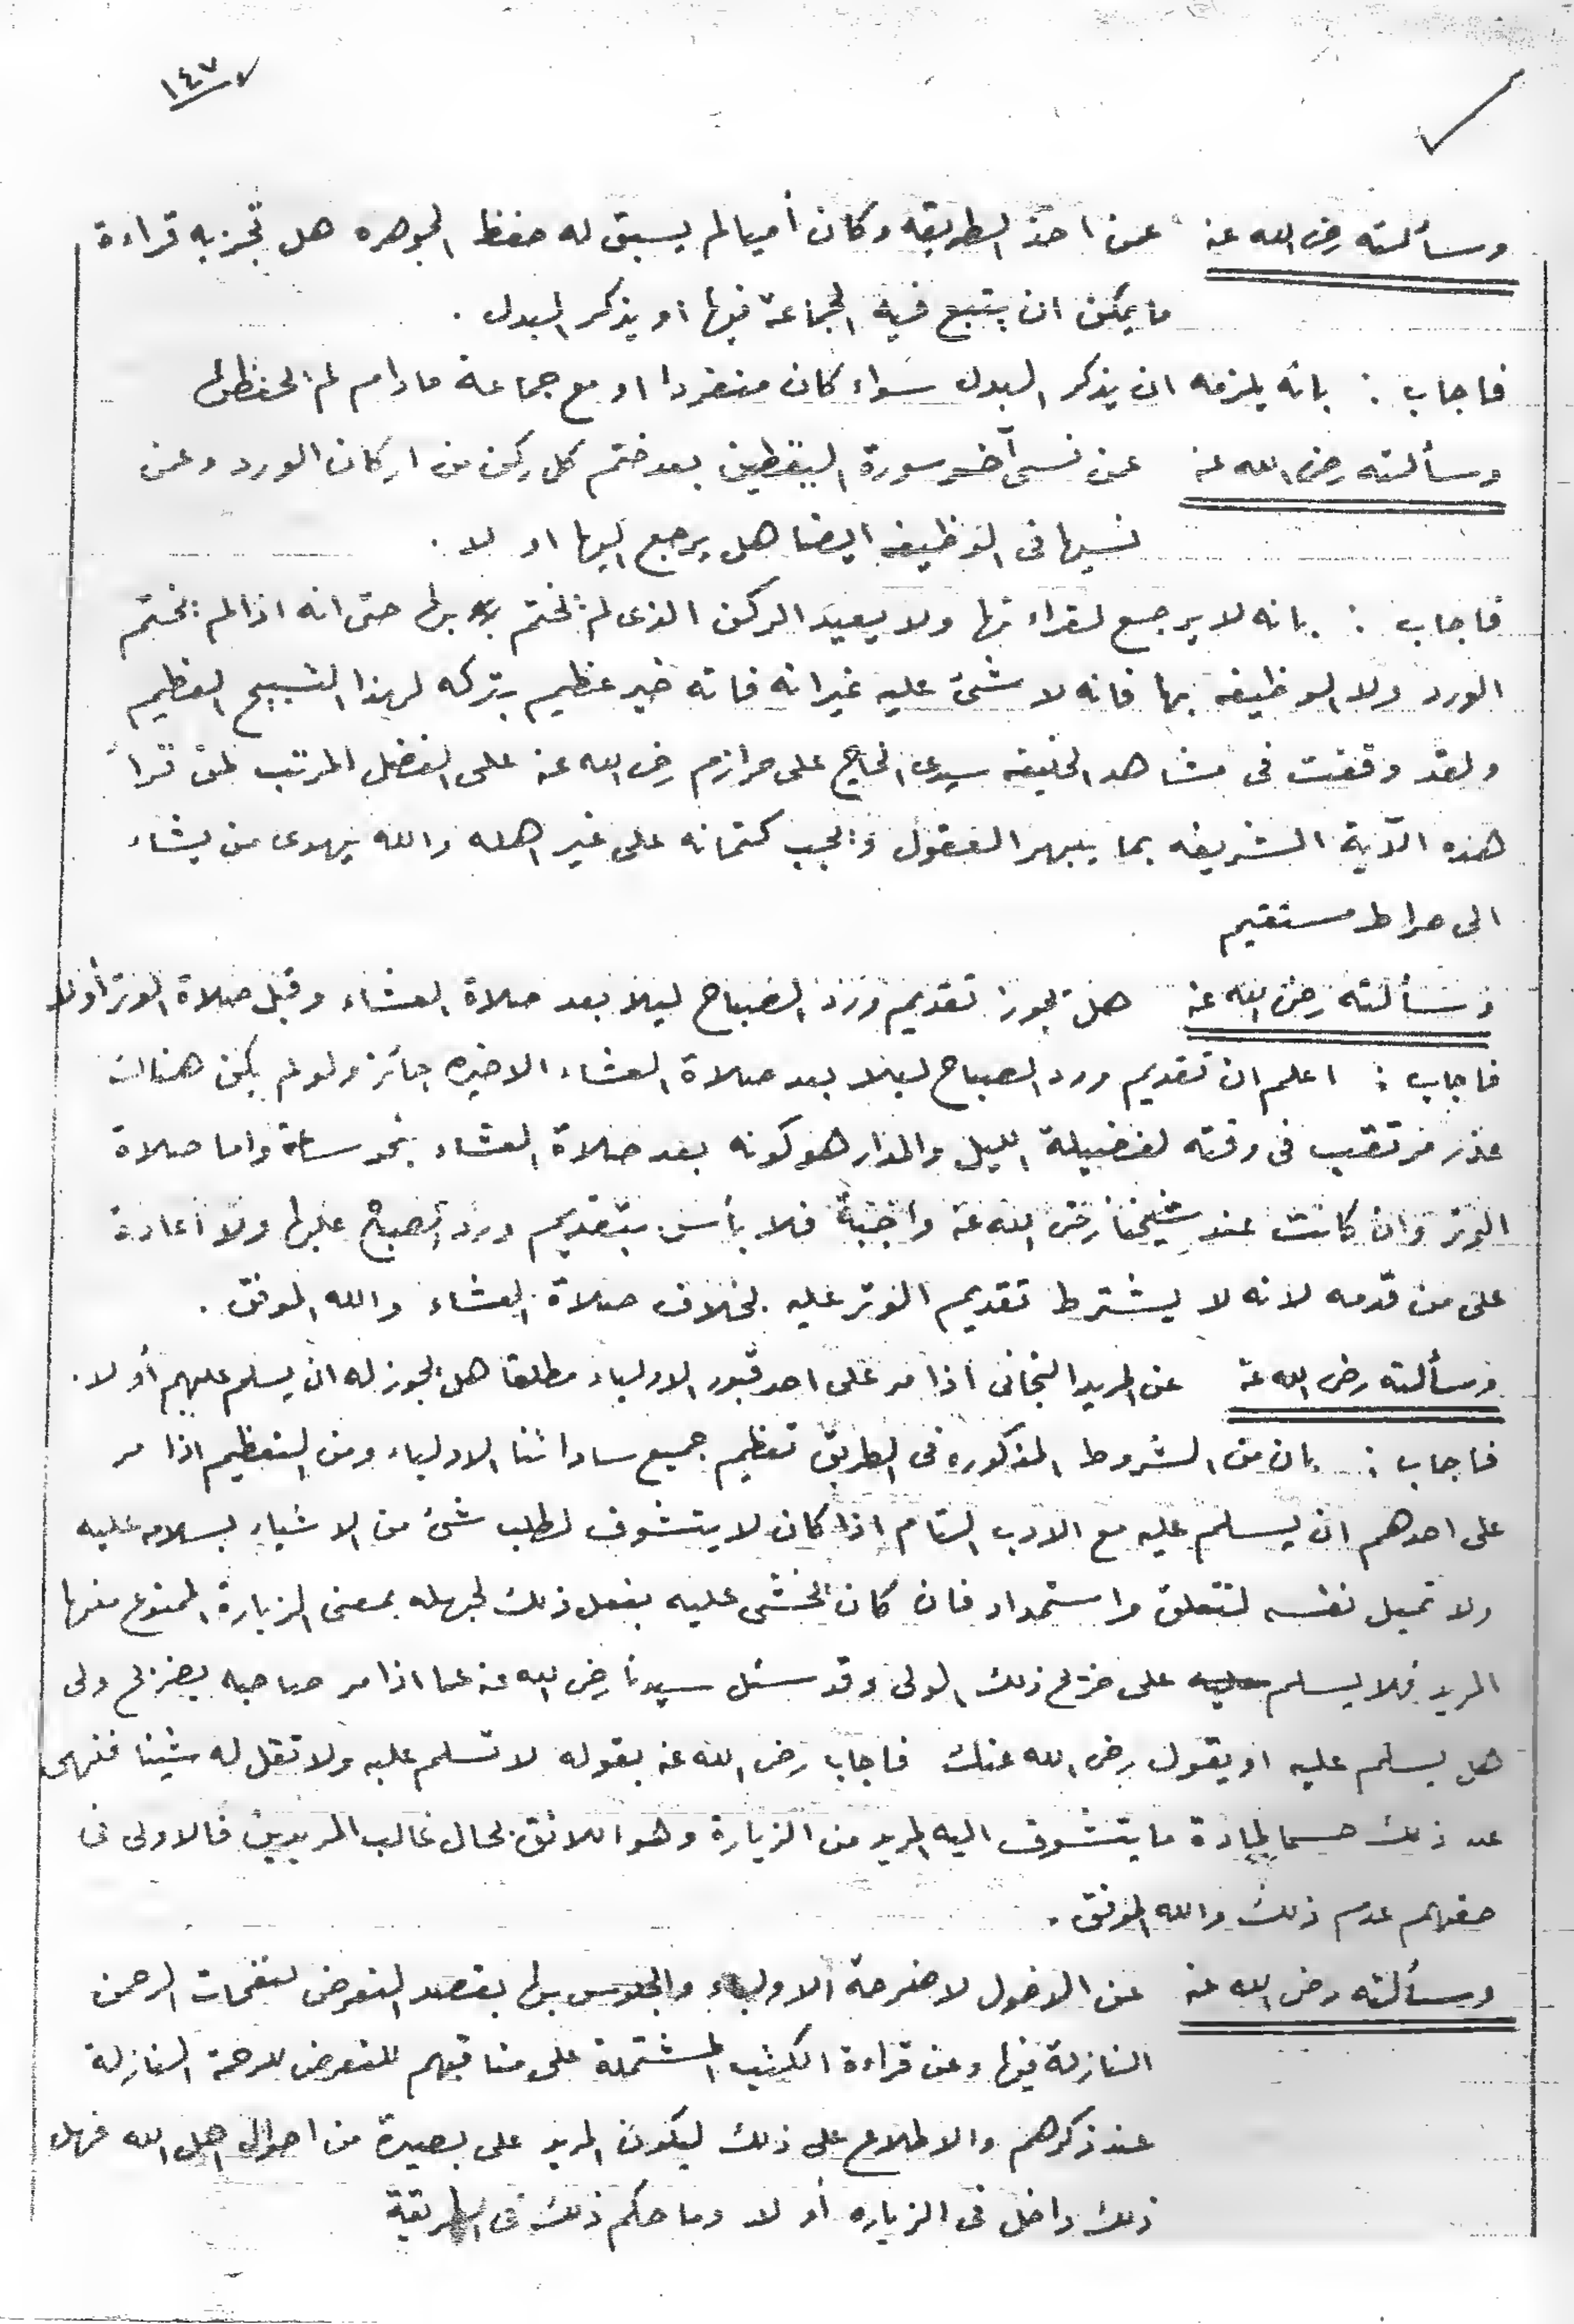 ١٤٧
وسألته رضى الله عنه عمن اخذ الطريقه وكان أميا لم يسبق له حفظ الجوهره هل تجزيه قراءة
ما يمكن ان يتبع فيه الجماعة فيها او يذكر البدل .
فاجاب : بانه يلزمه ان يذكر البدل سواء كان منفردا او مع جماعة مادام لم يحفظها
وسألته رضى الله عنه عمن نسى آخر سورة اليقطين بعد ختم كل ركن من اركان الورد وعمن
نسيها فى الوظيفه ايضا هل يرجع اليها او لا .
فاجاب : بانه لا يرجع لقراءتها ولا يعيد الركن الذى لم يختم بها حتى انه اذا لم يختم
الورد ولا الوظيفه بها فانه لا شئ عليه غير انه فاته خير عظيم بتركه لهذا التسبيح العظيم
ولقد وقفت فى مشاهد الخليفه سيدى الحاج على حرازم رضى الله عنه على الفضل المرتب لمن قرأ
هذه الآية الشريفه بما يبهر العقول ويجب كتمانه على غير اهله والله يهدى من يشاء
الى صراط مستقيم
وسألته رضى الله عنه هل يجوز تقديم ورد الصباح ليلا بعد صلاة العشاء وقبل صلاة الوتر أولا
فاجاب : اعلم ان تقديم ورد الصباح ليلا بعد صلاة العشاء الاخيره جائز ولو لم يكن هناك
عذر مرتقب فى وقته لفضيلة الليل والمدار هو كونه بعد صلاة العشاء بنحو ساعة واما صلاة
الوتر وان كانت عند شيخنا رضى الله عنه واجبة فلا بأس بتقديم ورد الصباح عليها ولا اعادة
على من قدمه لانه لا يشترط تقديم الوتر عليه بخلاف صلاة العشاء والله الموفق .
وسألته رضى الله عنه عن المريد التجانى اذا مر على احد قبور الاولياء مطلقا هل يجوز له ان يسلم عليهم أو لا .
فاجاب : بان من الشروط المذكوره فى الطريق تعظيم جميع ساداتنا الاولياء ومن التعظيم اذا مر
على احدهم ان يسلم عليه مع الادب التام اذا كان لا يتشوف لطلب شئ من الاشياء بسلامه عليه
ولا تميل نفسه لتعلق واستمداد فان كان يخشى عليه بفعل ذلك لجهله بمعنى الزيارة الممنوع منها
المريد فلا يسلم على ضريح ذلك الولى وقد سئل سيدنا رضى الله عنه عما اذا مر صاحبه بضريح ولى
هل يسلم عليه او يقول رضى الله عنك فاجاب رضى الله عنه بقوله لا تسلم عليه ولا تقل له شيئا فنهى
عن ذلك حسما لمادة ما يتشوف اليه المريد من الزيارة وهو اللائق بحال غالب المريدين فالاولى فى
حقهم عدم ذلك والله الموفق .
وسألته رضى الله عنه عن الدخول لاضرحة الاولياء والجلوس بها بقصد التعرض لنفحات الرحمن
النازلة فيها وعن قراءة الكتب المشتملة على مناقبهم للتعرض للرحمة النازلة
عند ذكرهم والاطلاع على ذلك ليكون المريد على بصيرة من احوال اهل الله فهل
ذلك داخل فى الزياره أو لا وما حكم ذلك فى الطريقة